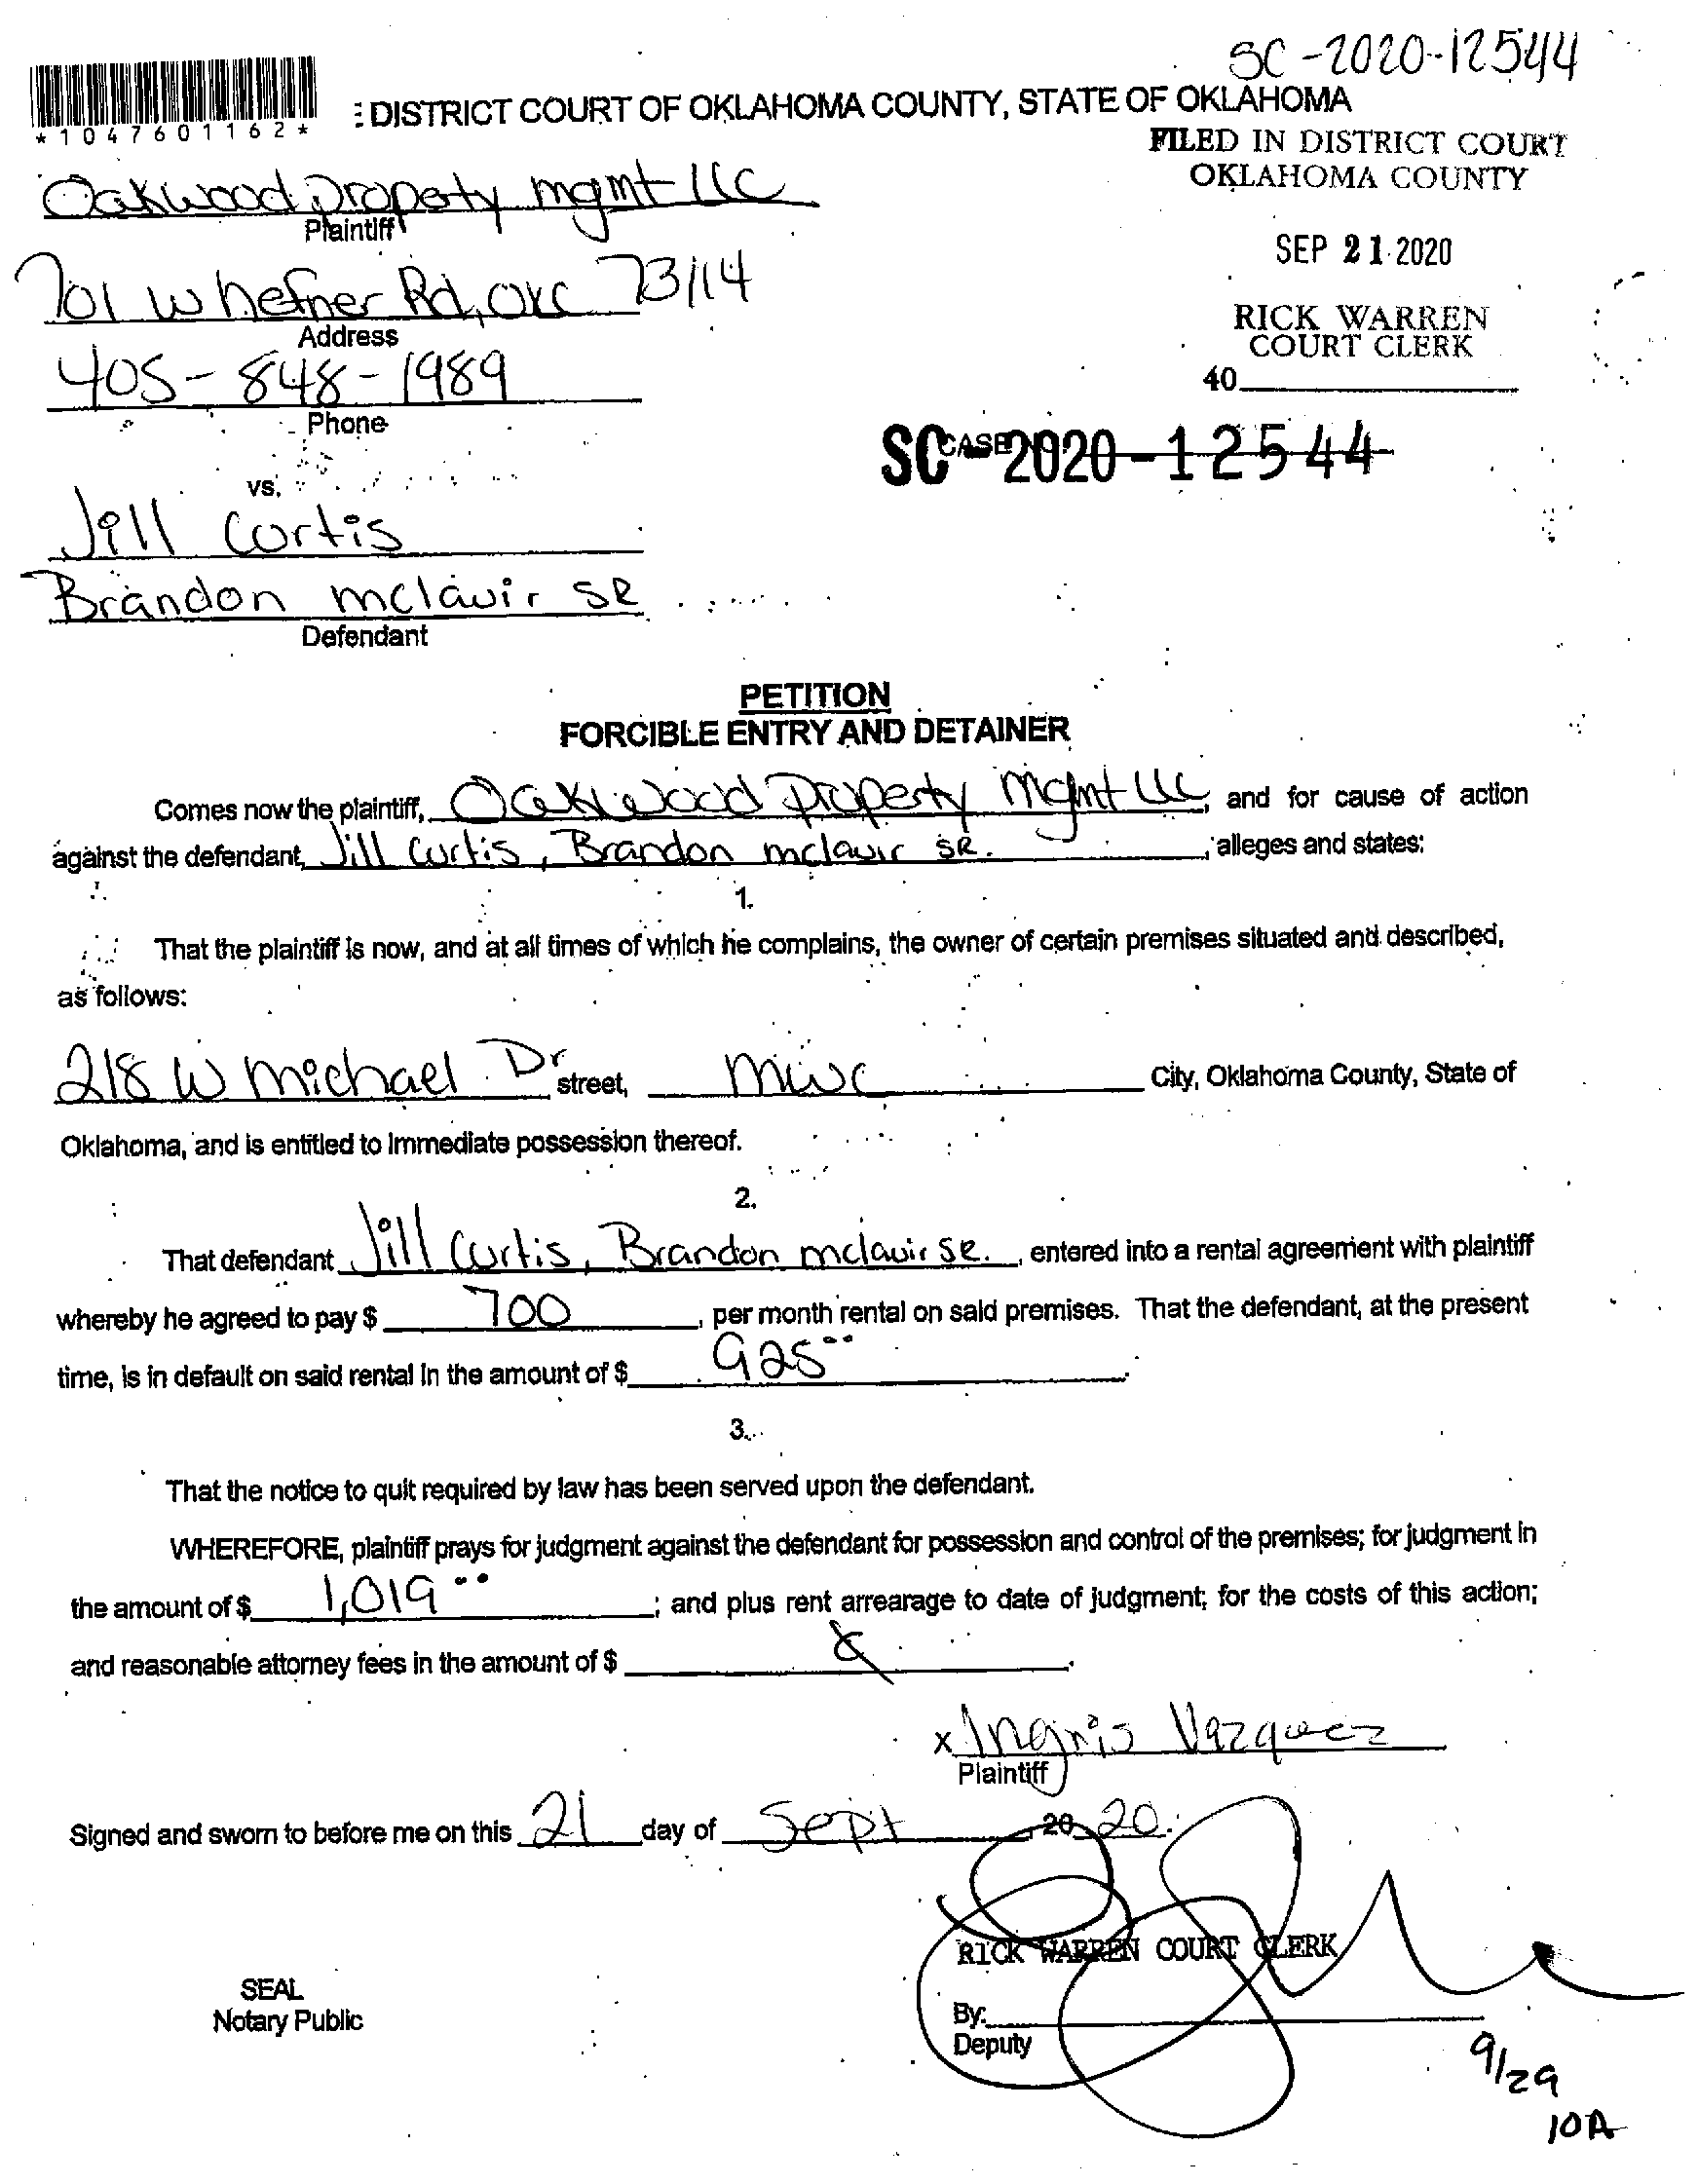 SC-2020-12544
*1047601162*
E DISTRICT COURT OF OKLAHOMA COUNTY, STATE OF OKLAHOMA
FILED IN DISTRICT COURT
OKLAHOMA COUNTY
Oakwood Propety mgmt LLC
Plaintiff
SEP 21 2020
701 W hefner Rd, OKC 73114
Address
RICK WARREN
COURT CLERK
405-848-1989
40
Phone
SC CASE 2020-12544
vs.
Jill Curtis
Brandon mclavir SR
Defendant
PETITION
FORCIBLE ENTRY AND DETAINER
Comes now the plaintiff, Oakwood Property Mgmt LLC, and for cause of action
against the defendant, Jill Curtis, Brandon mclavir SR. , alleges and states:
1.
That the plaintiff is now, and at all times of which he complains, the owner of certain premises situated and described,
as follows:
218 W michael Dr street, MWC City, Oklahoma County, State of
Oklahoma, and is entitled to immediate possession thereof.
2.
That defendant Jill Curtis, Brandon mclavir SR. , entered into a rental agreement with plaintiff
whereby he agreed to pay $ 700 , per month rental on said premises. That the defendant, at the present
time, is in default on said rental in the amount of $ 925.00 .
3.
That the notice to quit required by law has been served upon the defendant.
WHEREFORE, plaintiff prays for judgment against the defendant for possession and control of the premises; for judgment in
the amount of $ 1,019.00 ; and plus rent arrearage to date of judgment; for the costs of this action;
and reasonable attorney fees in the amount of $ .
x Ingris Vazquez
Plaintiff
Signed and sworn to before me on this 21 day of Sept , 20 20.
RICK WARREN COURT CLERK
SEAL
Notary Public
By:
Deputy
9/29
10A